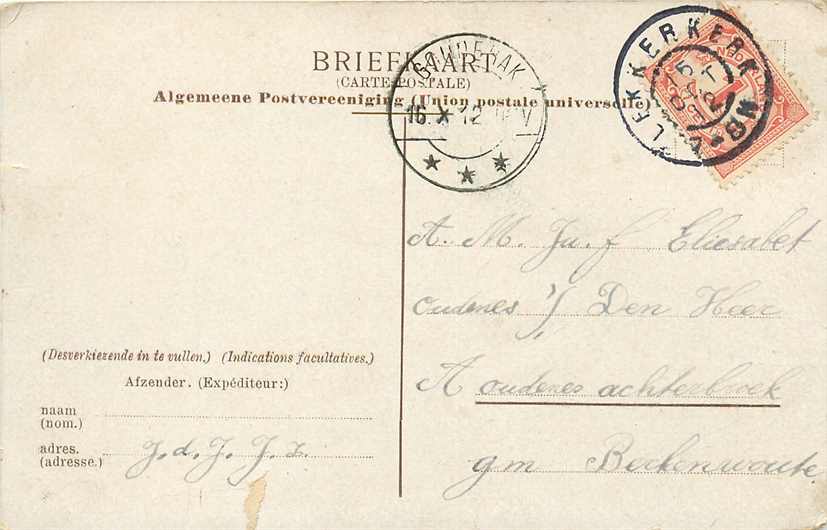 BRIEFKAART
(CARTE POSTALE)
Algemeene Postvereeniging (Union postale universelle)
GOUDERAK
16 X 12 V
LEKKERKERK
15 OCT 12
A. M. Ju. f Eliesabet
oudenes 'J Den Heer
A oudenes achterbroek
gm Berkenwoute
(Desverkiezende in te vullen.) (Indications facultatives.)
Afzender. (Expéditeur:)
naam
(nom.)
adres. J. d. J. J. z.
(adresse.)